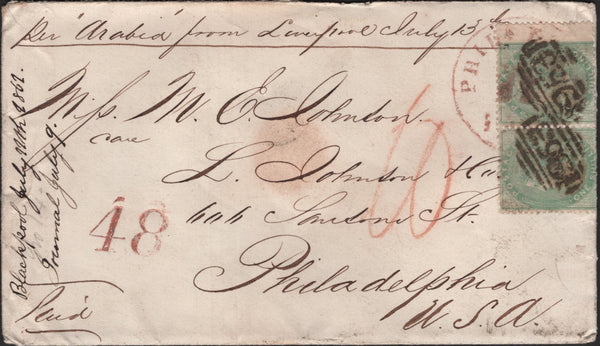 per "Arabia" from Liverpool July 13th
PHIL
Miss M. E. Johnson.
care
L. Johnson & Co.
606 Sansom St.
Philadelphia
U.S.A.
48
Paid
Blackpool July 12th 1861.
Journal July 9.